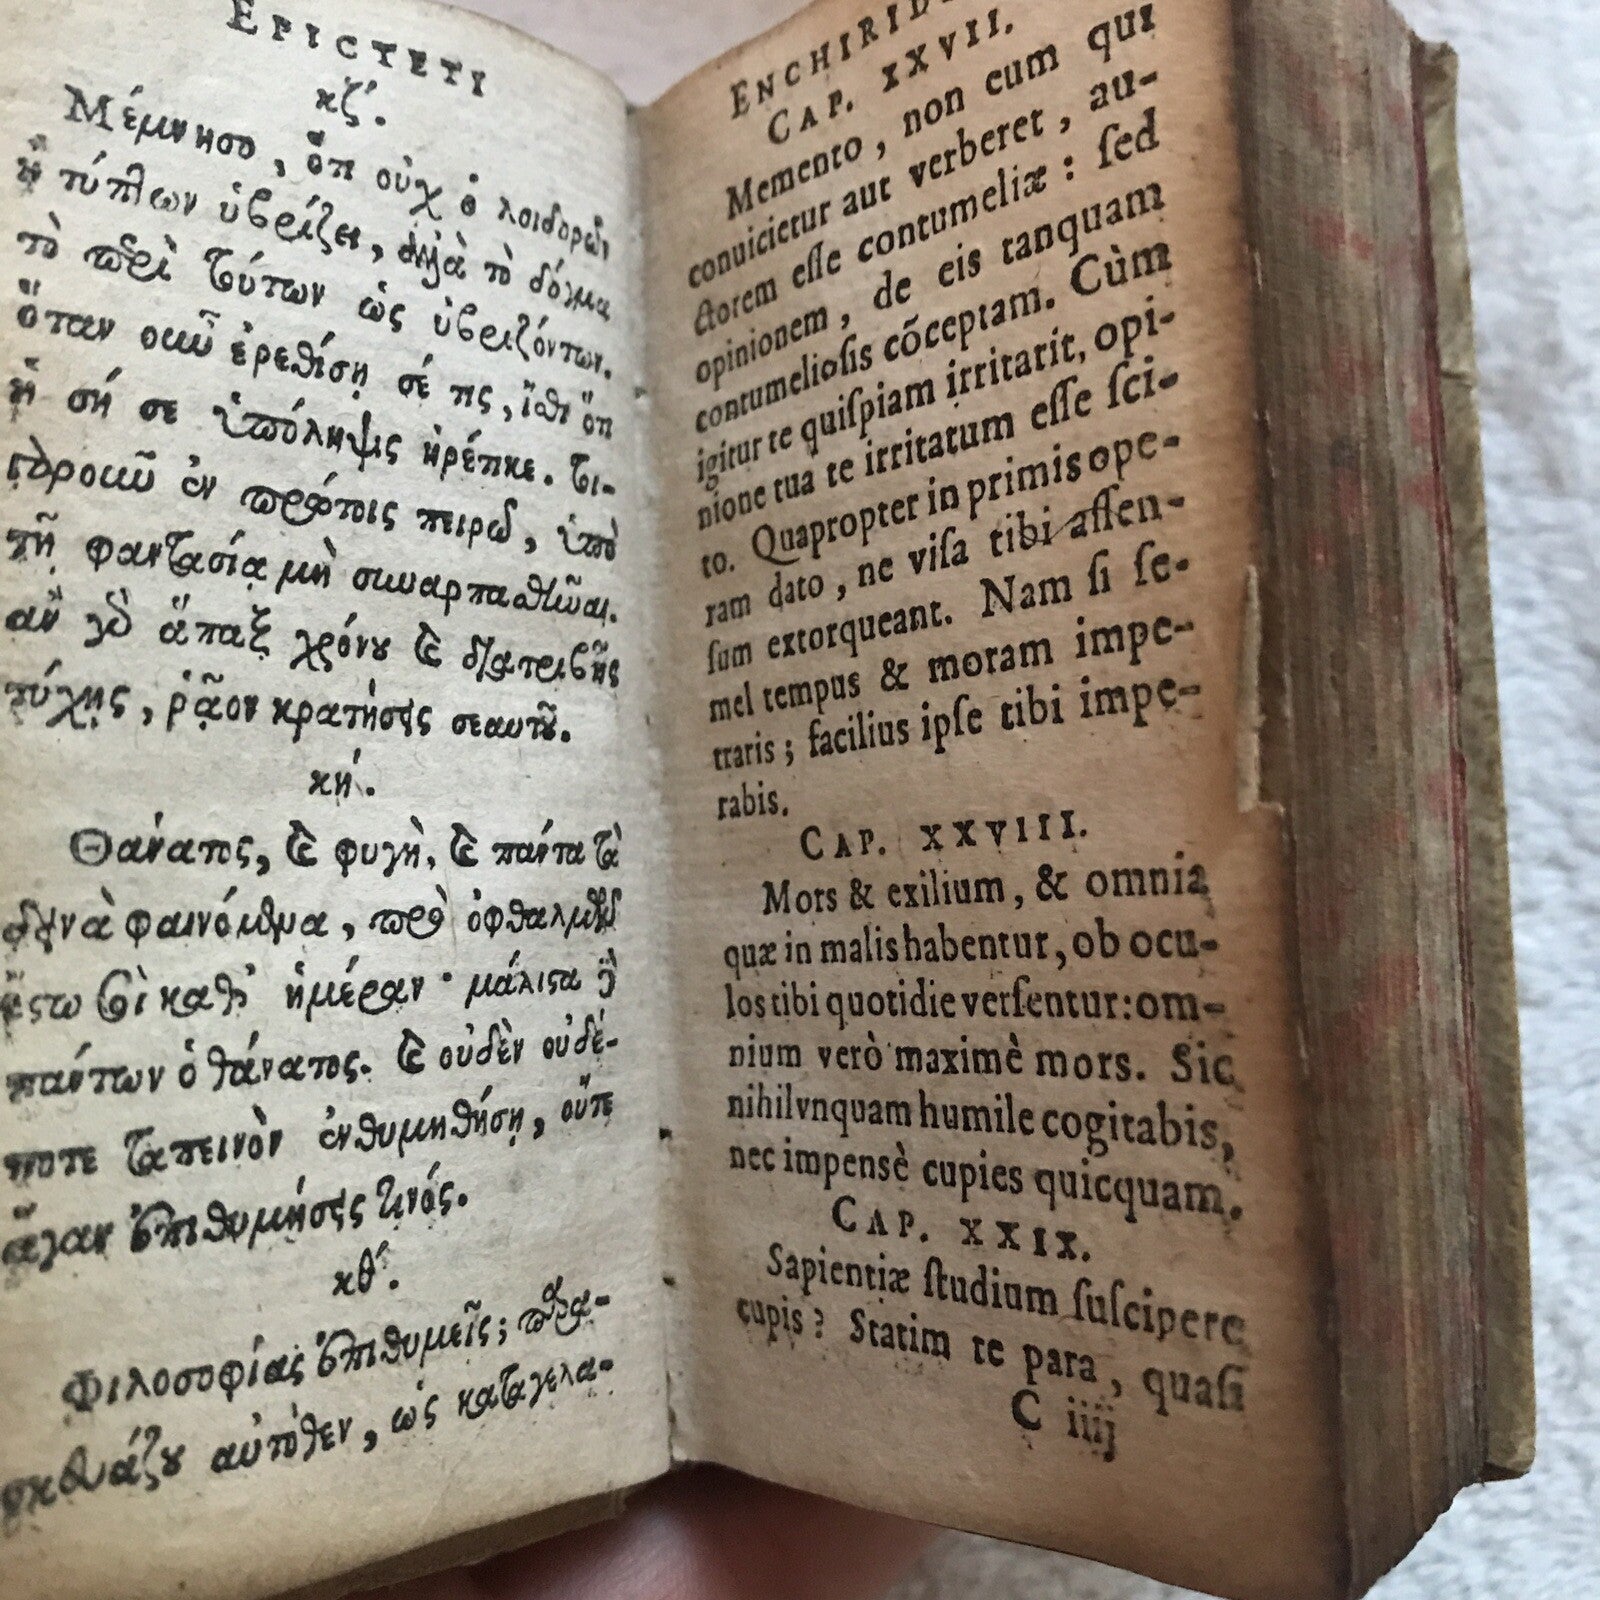 EPICTETI
κζ΄.
Μέμνησο, ὅτι οὐχ ὁ λοιδορῶν
ἢ τύπτων ὑβρίζει, ἀλλὰ τὸ δόγμα
τὸ περὶ τούτων ὡς ὑβριζόντων.
ὅταν οὖν ἐρεθίσῃ σέ τις, ἴσθι ὅτι
ἡ σή σε ὑπόληψις ἠρέθικε. τοι-
γαροῦν ἐν πρώτοις πειρῶ, ὑπὸ
τῆς φαντασίας μὴ συναρπασθῆναι.
ἂν γὰρ ἅπαξ χρόνου καὶ διατριβῆς
τύχῃς, ῥᾷον κρατήσεις σεαυτοῦ.
κη΄.
Θάνατος, καὶ φυγὴ, καὶ πάντα τὰ
δεινὰ φαινόμενα, πρὸ ὀφθαλμῶν
ἔστω σοὶ καθ᾽ ἡμέραν· μάλιστα δὲ
πάντων ὁ θάνατος. καὶ οὐδὲν οὐδέ-
ποτε ταπεινὸν ἐνθυμηθήσῃ, οὔτε
ἄγαν ἐπιθυμήσεις τινός.
κθ΄.
Φιλοσοφίας ἐπιθυμεῖς; παρα-
σκευάζου αὐτόθεν, ὡς καταγελα-
ENCHIRIDI
CAP. XXVII.
Memento, non eum qui
conuicietur aut verberet, au-
ctorem eſſe contumeliæ: ſed
opinionem, de eis tanquam
contumelioſis cōceptam. Cùm
igitur te quiſpiam irritarit, opi-
nione tua te irritatum eſſe ſci-
to. Quapropter in primis ope-
ram dato, ne viſa tibi aſſen-
ſum extorqueant. Nam ſi ſe-
mel tempus & moram impe-
traris; facilius ipſe tibi impe-
rabis.
CAP. XXVIII.
Mors & exilium, & omnia
quæ in malis habentur, ob ocu-
los tibi quotidie verſentur: om-
nium verò maximè mors. Sic
nihil vnquam humile cogitabis,
nec impensè cupies quicquam.
CAP. XXIX.
Sapientiæ ſtudium ſuſcipere
cupis? Statim te para, quaſi
C iiij